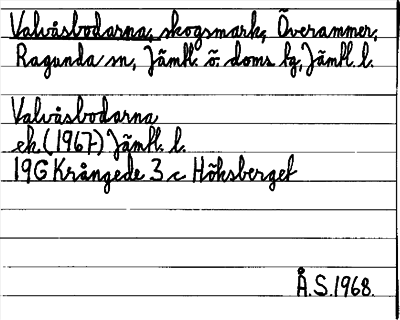 Valvåsbodarna, skogsmark, Överammer,
Ragunda sn, Jämtl. ö. doms. tg, Jämtl. l.
Valvåsbodarna
ek. (1967) Jämtl. l.
19G Krångede 3 c Höksberget
Å.S. 1968.